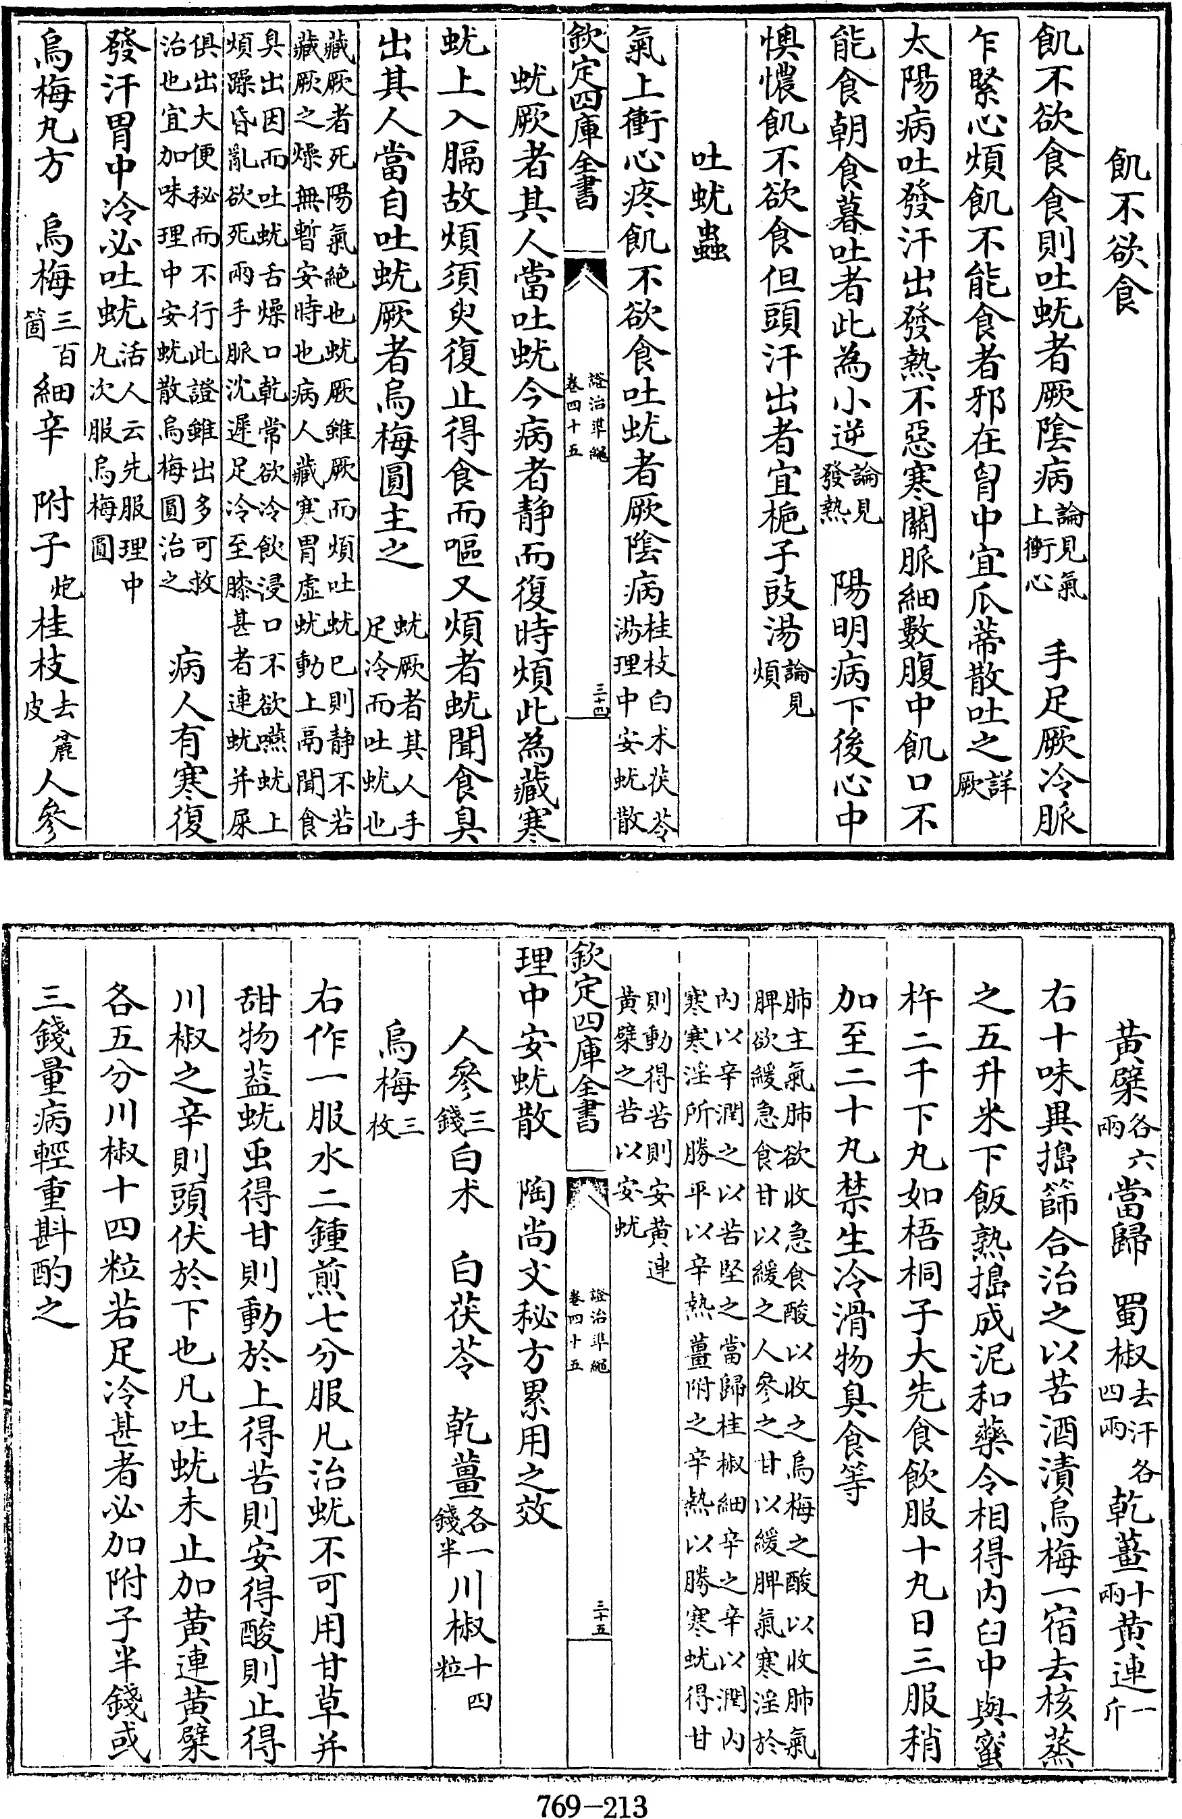 飢不欲食
飢不欲食食則吐蚘者厥陰病論見氣上衝心 手足厥冷脈
乍緊心煩飢不能食者邪在胷中宜瓜蒂散吐之詳厥
太陽病吐發汗出發熱不惡寒關脈細數腹中飢口不
能食朝食暮吐者此為小逆論見發熱 陽明病下後心中
懊憹飢不欲食但頭汗出者宜梔子豉湯論見煩
吐蚘蟲
氣上衝心疼飢不欲食吐蚘者厥陰病桂枝白术茯苓湯理中安蚘散
欽定四庫全書 證治準繩 卷四十五 三十四
蚘厥者其人當吐蚘今病者靜而復時煩此為藏寒
蚘上入膈故煩須臾復止得食而嘔又煩者蚘聞食臭
出其人當自吐蚘厥者烏梅圓主之 蚘厥者其人手足冷而吐蚘也
藏厥者死陽氣絶也蚘厥雖厥而煩吐蚘已則靜不若
藏厥之燥無暫安時也病人藏寒胃虛蚘動上鬲聞食
臭出因而吐蚘舌燥口乾常欲冷飲浸口不欲嚥蚘上
煩躁昏亂欲死兩手脈沈遲足冷至膝甚者連蚘并屎
俱出大便秘而不行此證雖出多可救
治也宜加味理中安蚘散烏梅圓治之 病人有寒復
發汗胃中冷必吐蚘活人云先服理中凡次服烏梅圓
烏梅丸方 烏梅三百箇細辛 附子炮桂枝去麄皮人參
黃蘗各六兩當歸 蜀椒去汗各四兩乾薑十兩黃連一斤
右十味異搗篩合治之以苦酒漬烏梅一宿去核蒸
之五升米下飯熟搗成泥和藥令相得内臼中與蜜
杵二千下丸如梧桐子大先食飲服十丸日三服稍
加至二十丸禁生冷滑物臭食等
肺主氣肺欲收急食酸以收之烏梅之酸以收肺氣
脾欲緩急食甘以緩之人參之甘以緩脾氣寒淫於
内以辛潤之以苦堅之當歸桂椒細辛之辛以潤内
寒寒淫所勝平以辛熱薑附之辛熱以勝寒蚘得甘
則動得苦則安黃連
黃蘗之苦以安蚘
欽定四庫全書 證治準繩 卷四十五 三十五
理中安蚘散 陶尚文秘方累用之效
人參三錢白术 白茯苓 乾薑各一錢半川椒十四粒
烏梅三枚
右作一服水二鍾煎七分服凡治蚘不可用甘草并
甜物葢蚘虫得甘則動於上得苦則安得酸則止得
川椒之辛則頭伏於下也凡吐蚘未止加黃連黃蘗
各五分川椒十四粒若足冷甚者必加附子半錢或
三錢量病輕重斟酌之
769-213